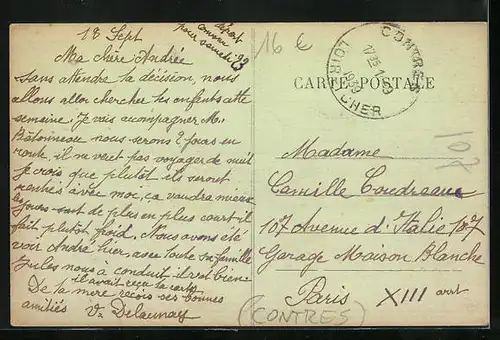 18 Sept
départ
convenu
pour samedi 23
Ma chère Andrée
sans attendre la décision, nous
allons aller chercher tes enfants cette
semaine. Je vais accompagner M.
Bâtonneau nous serons 2 jours en
route, il ne veut pas voyager de nuit
Je crois que plutôt ils seront
rentrés avec moi, ça vaudra mieux
les jours sont de plus en plus court il
fait plutôt froid. Nous avons été
voir André hier, avec toute sa famille
Jules nous a conduit, il est bien
il avait reçu ta carte
De ta mère reçois ses bonnes
amitiés Vve Delaunay
16 €
CONTRES
LOIR
CHER
CARTE POSTALE
201
Madame
Camille Coudreaux
107 Avenue d'Italie 107
Garage Maison Blanche
Paris XIII arrt
(CONTRES)